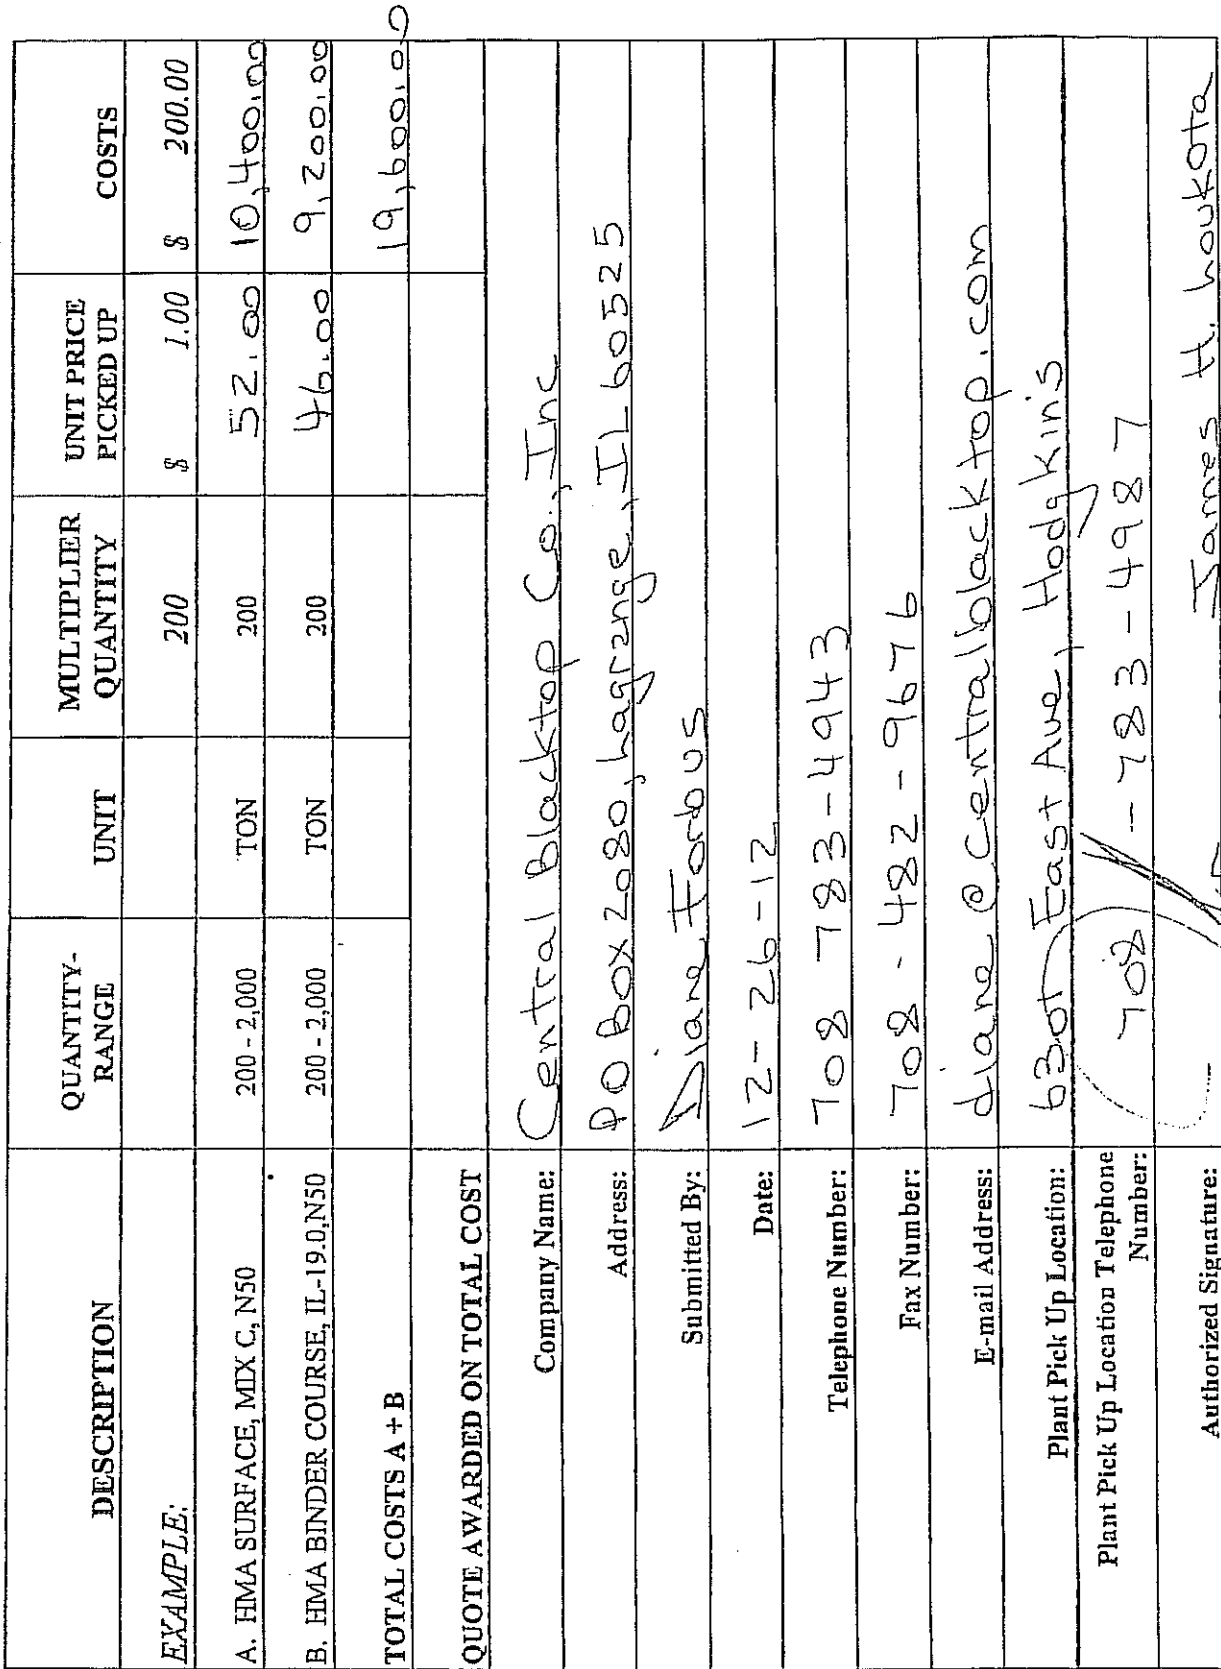 DESCRIPTION QUANTITY-RANGE UNIT MULTIPLIER QUANTITY UNIT PRICE PICKED UP COSTS
EXAMPLE: 200 $ 1.00 $ 200.00
A. HMA SURFACE, MIX C, N50 200 - 2,000 TON 200 52.00 10,400.00
B. HMA BINDER COURSE, IL-19.0,N50 200 - 2,000 TON 200 46.00 9,200.00
TOTAL COSTS A + B 19,600.00
QUOTE AWARDED ON TOTAL COST
Company Name: Central Blacktop Co., Inc
Address: PO Box 2080, Lagrange, IL 60525
Submitted By: Diane
Date: 12-26-12
Telephone Number: 708 783-4943
Fax Number: 708-482-9676
E-mail Address: diane@centralblacktop.com
Plant Pick Up Location: 6301 East Ave, Hodgkins
Plant Pick Up Location Telephone Number: 708-783-4987
Authorized Signature: James H.